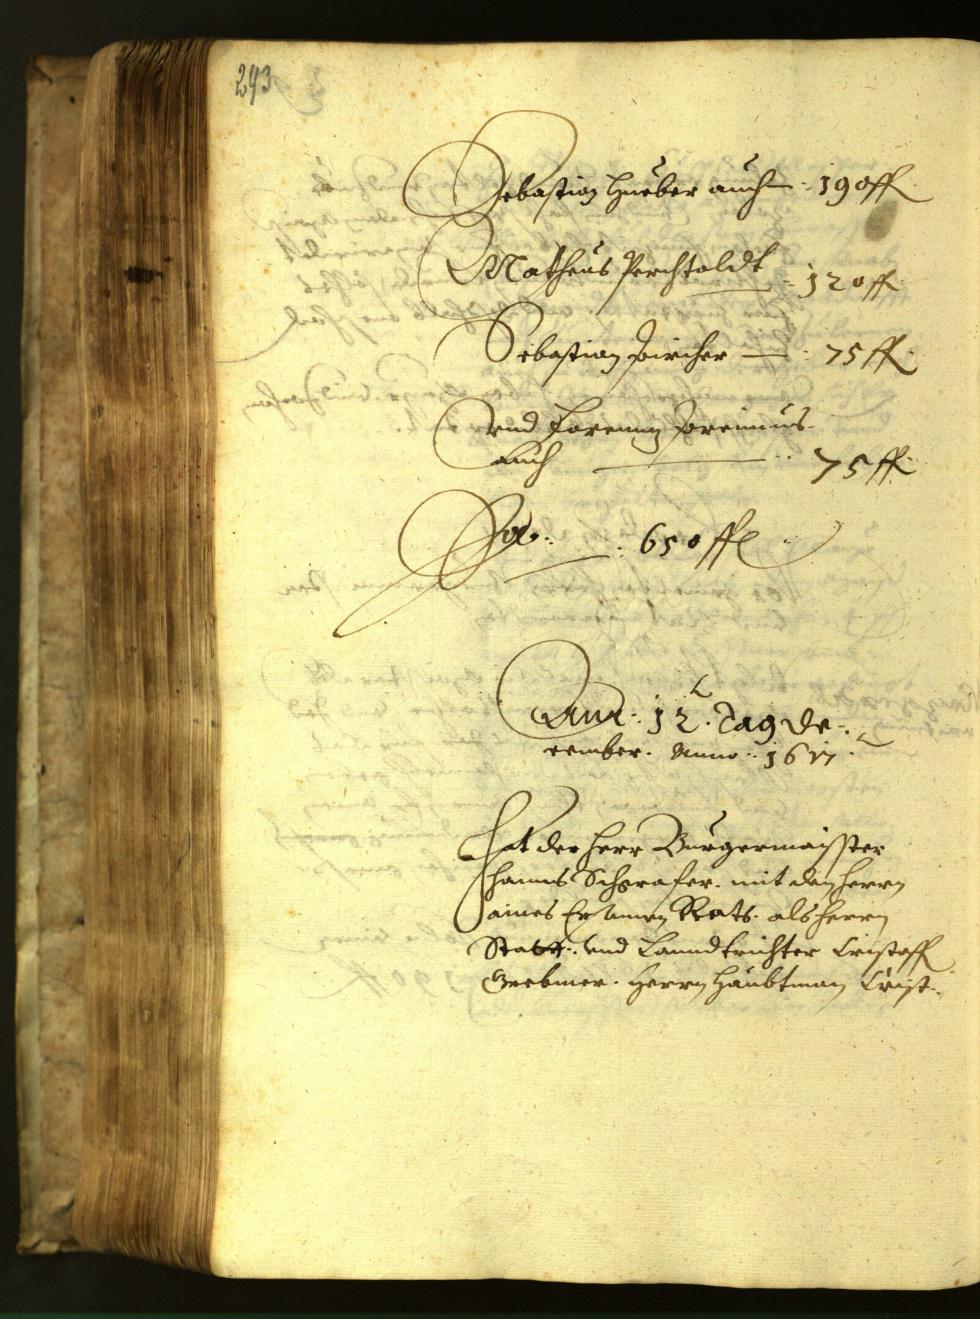 293
Sebastian Hueber auch — 190 ff
Matheus Perchtoldt — 120 ff
Sebastian Pircher — 75 ff
vnd Lorenn
auch — 75 ff
650 ff
Am 12. Tag De¬
cember. Anno. 1617
Hat der Herr Burgermaisster
Hanns Schrafer. mit den Herrn
aines Ersamen Rats. als Herrn
Statt. vnd Lanndtrichter Cristoff
Grebmer. Herrn Haubtman Crist.